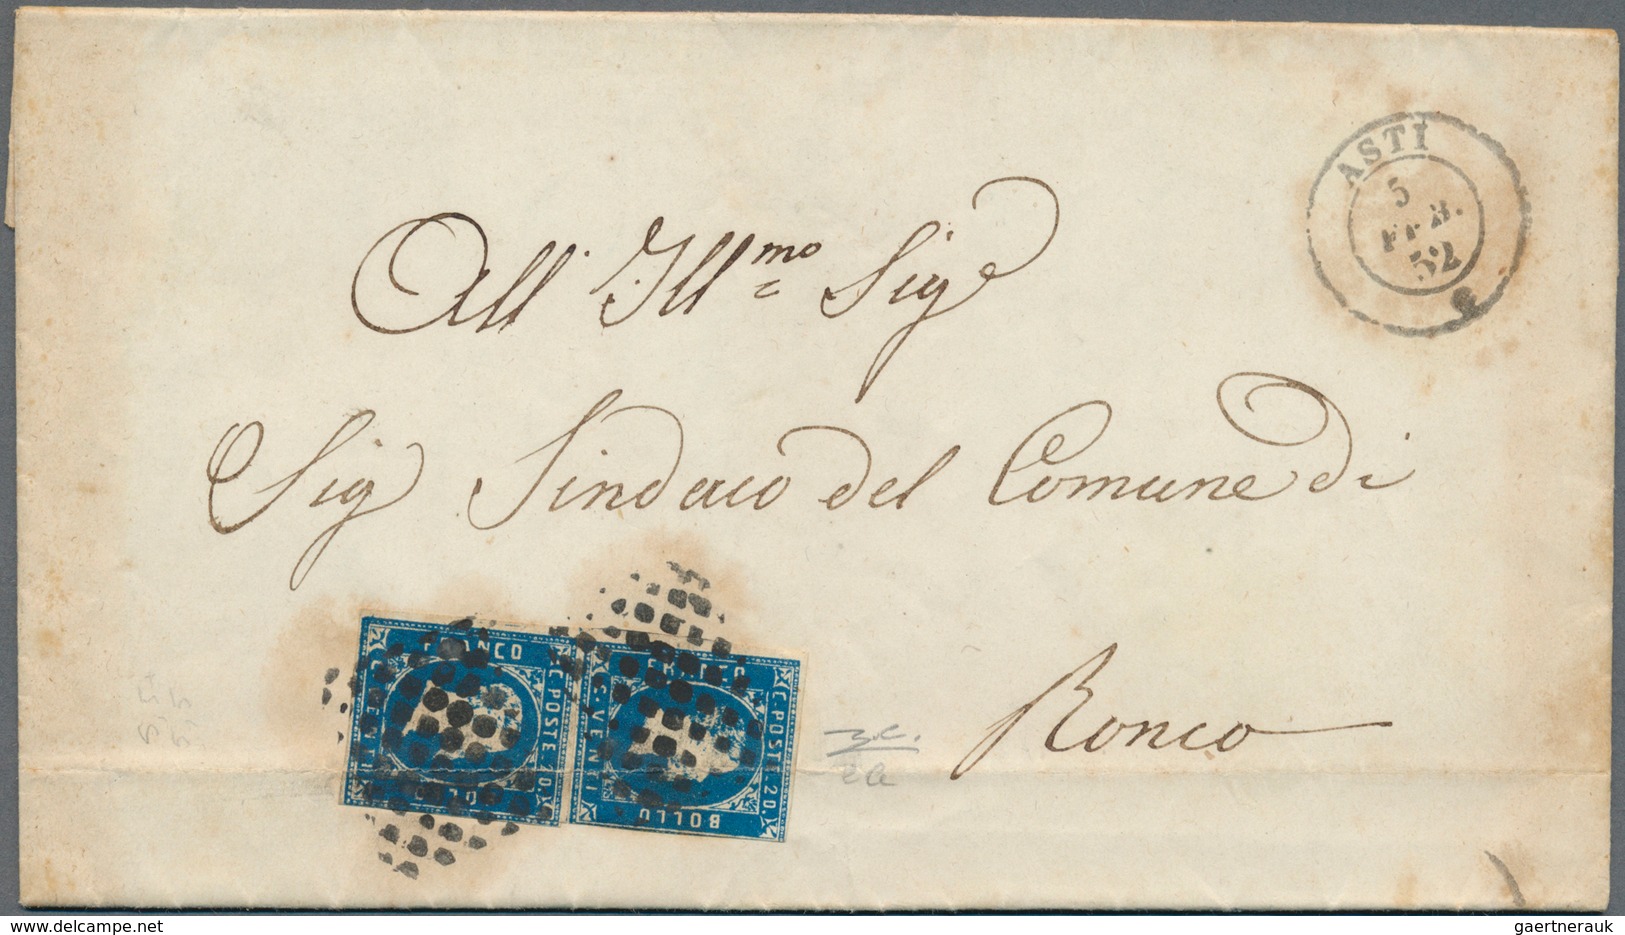 ASTI
5
FEB.
52
All' Ill.mo Sig.e
Sig Sindaco del Comune di
Ronco
FRANCO
C. VENTI
C. POSTE. 20.
BOLLO
FRANCO
C. VENTI
C. POSTE. 20.
BOLLO
gaertnerauk www.delcampe.net